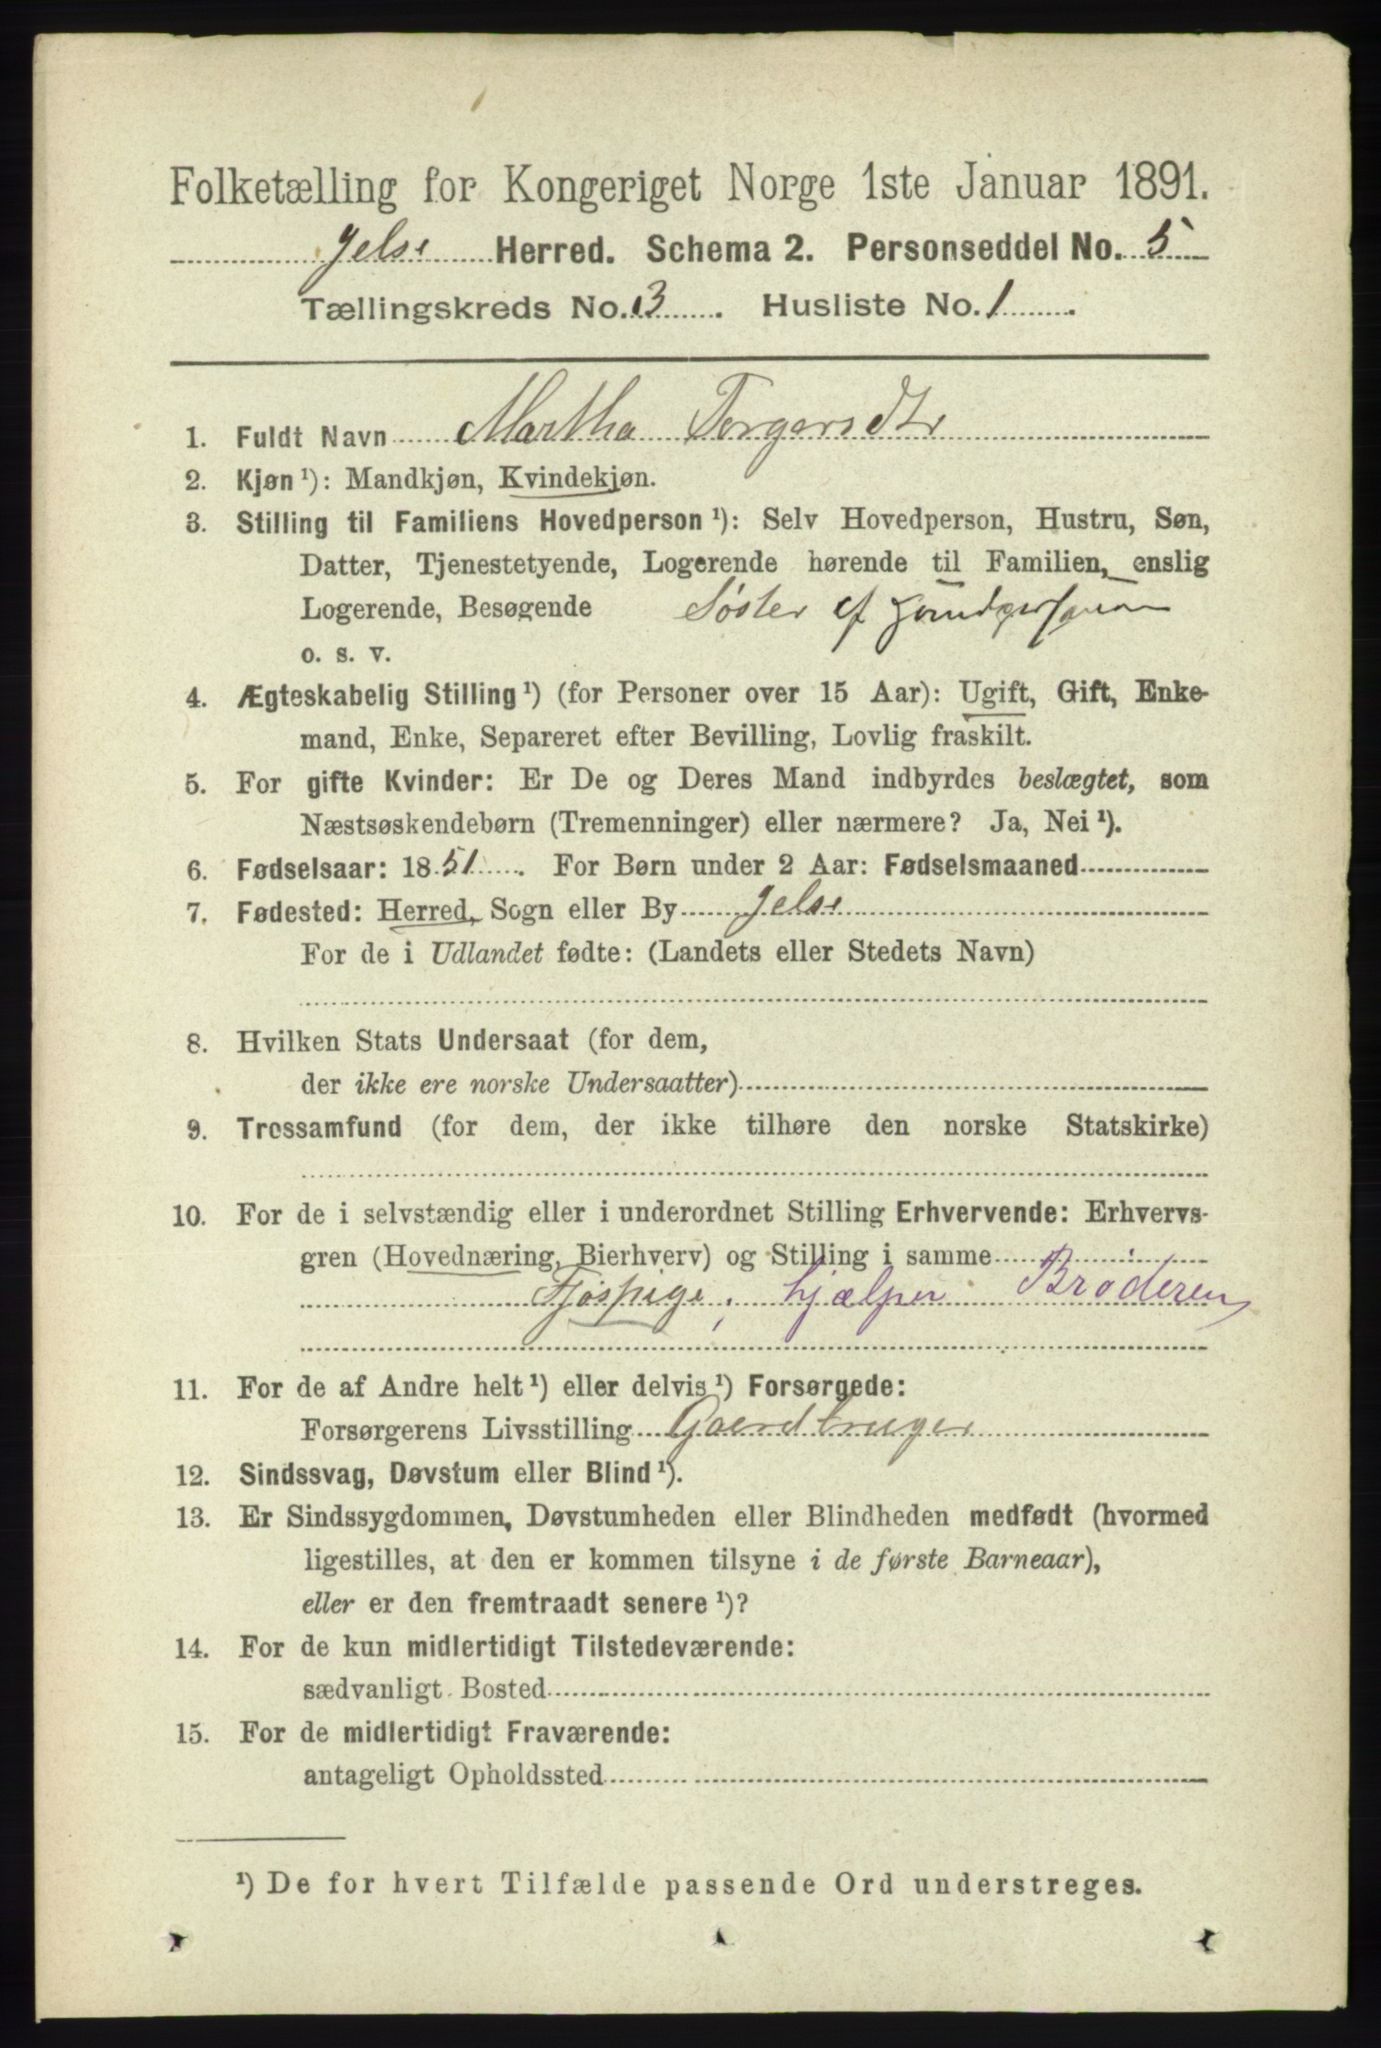 Folketælling for Kongeriget Norge 1ste Januar 1891.
Jelse Herred. Schema 2. Personseddel No. 5
Tællingskreds No. 3. Husliste No. 1.
1. Fuldt Navn Martha Torgersdtr
2. Kjøn ¹): Mandkjøn, Kvindekjøn.
3. Stilling til Familiens Hovedperson ¹): Selv Hovedperson, Hustru, Søn,
Datter, Tjenestetyende, Logerende hørende til Familien, enslig
Logerende, Besøgende Søster af
o. s. v.
4. Ægteskabelig Stilling ¹) (for Personer over 15 Aar): Ugift, Gift, Enke-
mand, Enke, Separeret efter Bevilling, Lovlig fraskilt.
5. For gifte Kvinder: Er De og Deres Mand indbyrdes beslægtet, som
Næstsøskendebørn (Tremenninger) eller nærmere? Ja, Nei ¹).
6. Fødselsaar: 1851. For Børn under 2 Aar: Fødselsmaaned
7. Fødested: Herred, Sogn eller By Jelse
For de i Udlandet fødte: (Landets eller Stedets Navn)
8. Hvilken Stats Undersaat (for dem,
der ikke ere norske Undersaatter)
9. Trossamfund (for dem, der ikke tilhøre den norske Statskirke)
10. For de i selvstændig eller i underordnet Stilling Erhvervende: Erhvervs-
gren (Hovednæring, Bierhverv) og Stilling i samme
Fjøspige, hjælper Broderen
11. For de af Andre helt ¹) eller delvis ¹) Forsørgede:
Forsørgerens Livsstilling Gaardbruger
12. Sindssvag, Døvstum eller Blind ¹).
13. Er Sindssygdommen, Døvstumheden eller Blindheden medfødt (hvormed
ligestilles, at den er kommen tilsyne i de første Barneaar),
eller er den fremtraadt senere ¹)?
14. For de kun midlertidigt Tilstedeværende:
sædvanligt Bosted
15. For de midlertidigt Fraværende:
antageligt Opholdssted
¹) De for hvert Tilfælde passende Ord understreges.